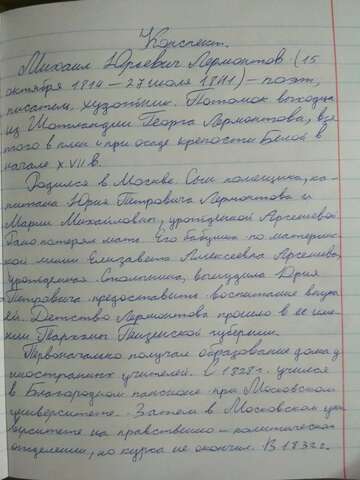 Конспект.
Михаил Юрьевич Лермонтов (15
октября 1814 – 27 июля 1841) – поэт,
писатель, художник. Потомок выходца
из Шотландии Георга Лермонтова, взя
того в плен при осаде крепости Белой в
начале XVII в.
Родился в Москве. Сын помещика, ка-
питана Юрия Петровича Лермонтова и
Марии Михайловны, урождённой Арсеньевой.
Рано потерял мать. Его бабушка по материн
ской линии Елизавета Алексеевна Арсеньева,
урождённая Столыпина, вынудила Юрия
Петровича предоставить воспитание внука
ей. Детство Лермонтова прошло в её име-
нии Тарханы Пензенской губернии.
Первоначально получал образование дома у
иностранных учителей. С 1828 г. учился
в Благородном пансионе при Московском
университете. Затем в Московском уни
верситете на нравственно – политическом
отделении, но курса не окончил. В 1832 г.